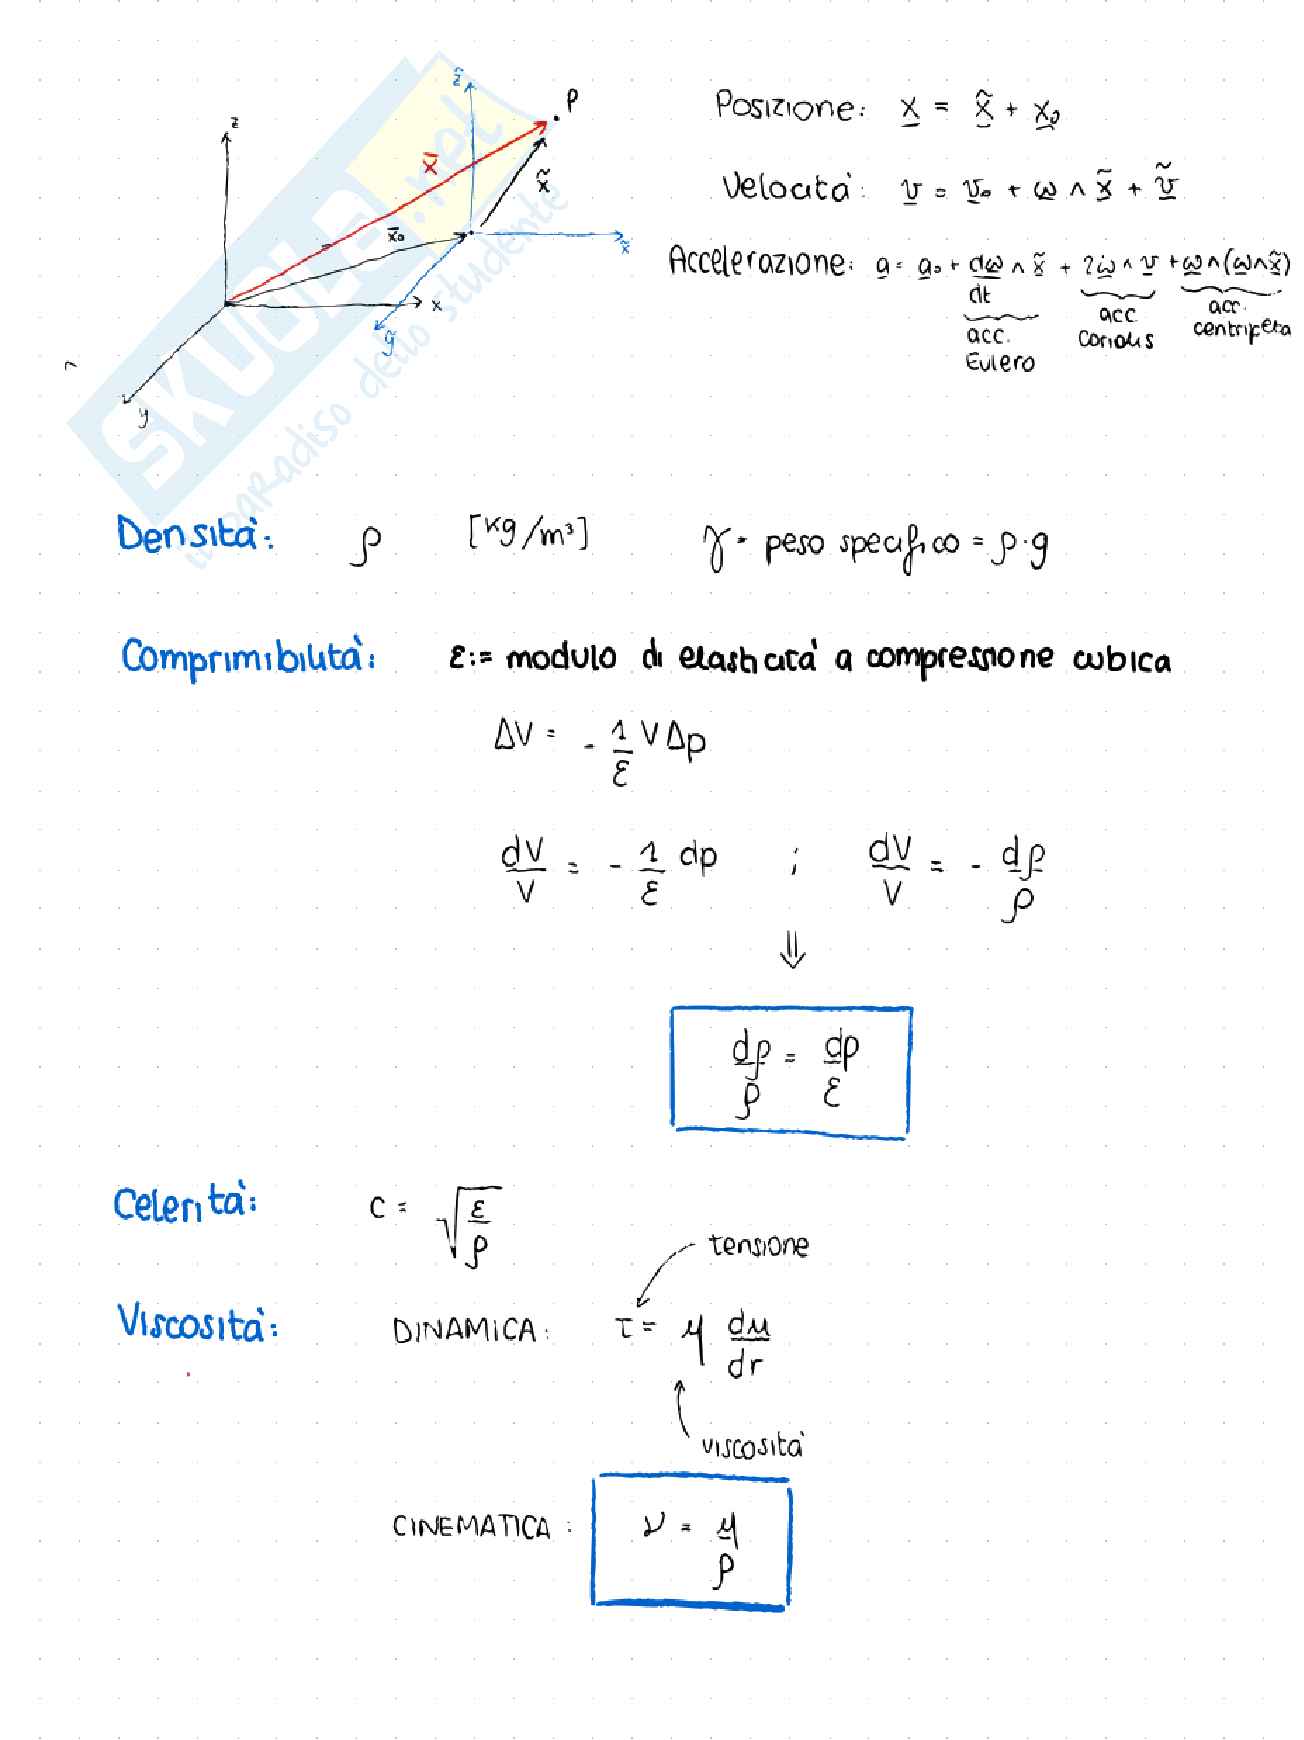 z
z̃
P
x̄
x̃
x̄₀
x̃
x
ỹ
y
SKUOLA.net
il paradiso dello studente
Posizione: x = x̃ + x₀
Velocità: v = v₀ + ω ∧ x̃ + ṽ
Accelerazione: a = a₀ + dω/dt ∧ x̃ + 2ω ∧ v + ω ∧ (ω ∧ x̃)
acc. Eulero
acc Coriolis
acc. centripeta
Densità: ρ [kg/m³] γ = peso specifico = ρ·g
Comprimibilità: ε:= modulo di elasticità a compressione cubica
ΔV = - 1/ε V Δp
dV/V = - 1/ε dp ; dV/V = - dρ/ρ
⇓
dρ/ρ = dp/ε
Celerità: c = √(ε/ρ)
tensione
Viscosità: DINAMICA: τ = μ du/dr
viscosità
CINEMATICA: ν = μ/ρ